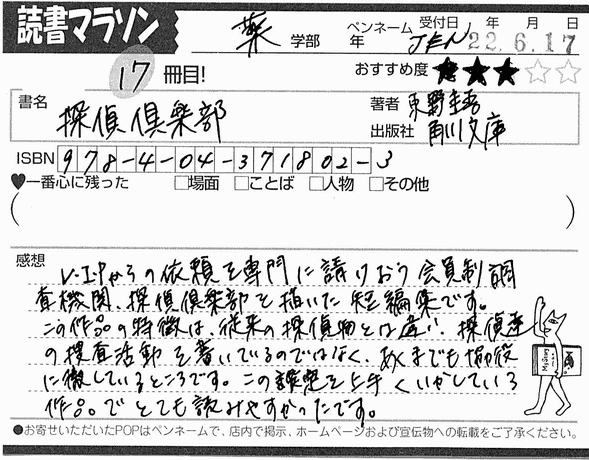 読書マラソン
薬 学部 年 ペンネーム JEN 受付日 年 月 日
22.6.17
17 冊目!
おすすめ度 ★★★☆☆
書名 探偵倶楽部
著者 東野圭吾
出版社 角川文庫
ISBN 978-4-04-371802-3
♥一番心に残った □場面 □ことば □人物 □その他
( )
感想
V.I.Pからの依頼を専門に請けおう会員制調
査機関、探偵倶楽部を描いた短編集です。
この作品の特徴は、従来の探偵物とは違い、探偵達
の捜査活動を書いているのではなく、あくまでも脇役
に徹しているところです。この設定を上手くいかしている
作品でとても読みやすかったです。
●お寄せいただいたPOPはペンネームで、店内で掲示、ホームページおよび宣伝物への転載をご了承ください。